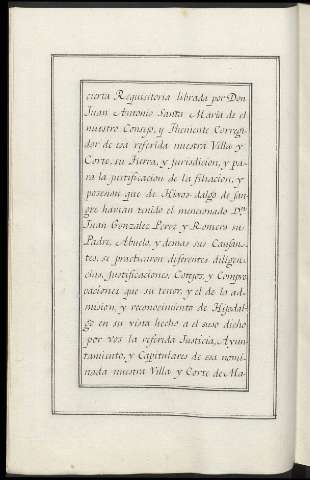 cierta Requisitoria librada por Don
Juan Antonio Santa Maria de el
nuestro Consejo, y Theniente Corregi-
dor de esa referida nuestra Villa y
Corte, su tierra, y jurisdicion, y pa-
ra la justificacion de la filiacion, y
posesion que de Hijos-dalgo de san-
gre havian tenido el mencionado Dn
Juan Gonzalez Perez y Romero su
Padre, Abuelo, y demas sus Causan-
tes, se practicaron diferentes diligen-
cias, Justificaciones, Cotejos, y Compro-
vaciones que su tenor, y el de la ad-
mision, y reconocimiento de Hijodal-
go en su vista hecho a el suso dicho
por vos la referida Justicia, Ayun-
tamiento, y Capitulares de esa nomi-
nada nuestra Villa y Corte de Ma-